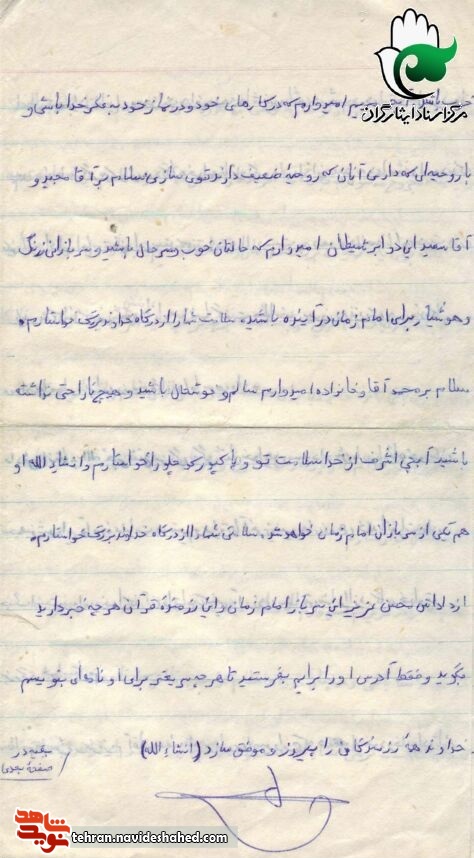 مرکز اسناد ایثارگران
خوب باشد امیدوارم که در کارهای خود و در نماز خود به فکر خدا باشی و
با روحیه‌ای که داری آنان که روحیهٔ ضعیف دارند قوی سازی سلام بر آقا مجید و
آقا سعید این دو ابر شیطان امیدوارم که حالتان خوب و سرحال باشید و سربازان زرنگ
و هوشیار برای امام زمان در آینده باشید. سلامت شما را از درگاه خداوند بزرگ خواستارم.
سلام بر محمد آقا و خانواده امیدوارم سالم و خوشحال باشید و هیچ ناراحتی نداشته
باشید آبجی اشرف از خدا سلامت تو و را خواستارم و انشاء الله او
هم یکی از سربازان امام زمان خواهد شد. سلامتی شما را از درگاه خداوند بزرگ خواستارم.
از داداش حسن عزیز این سرباز امام زمان و این رزمندهٔ قرآن هر چه خبر دارید
بگوئید و فقط آدرس او را برایم بفرستید تا هر چه سریعتر برای او نامه‌ای بنویسم
خداوند همهٔ رزمندگان را پیروز و موفق سازد (انشاءالله)
بقیه در
صفحهٔ بعدی
نوید شاهد
tehran.navideshahed.com